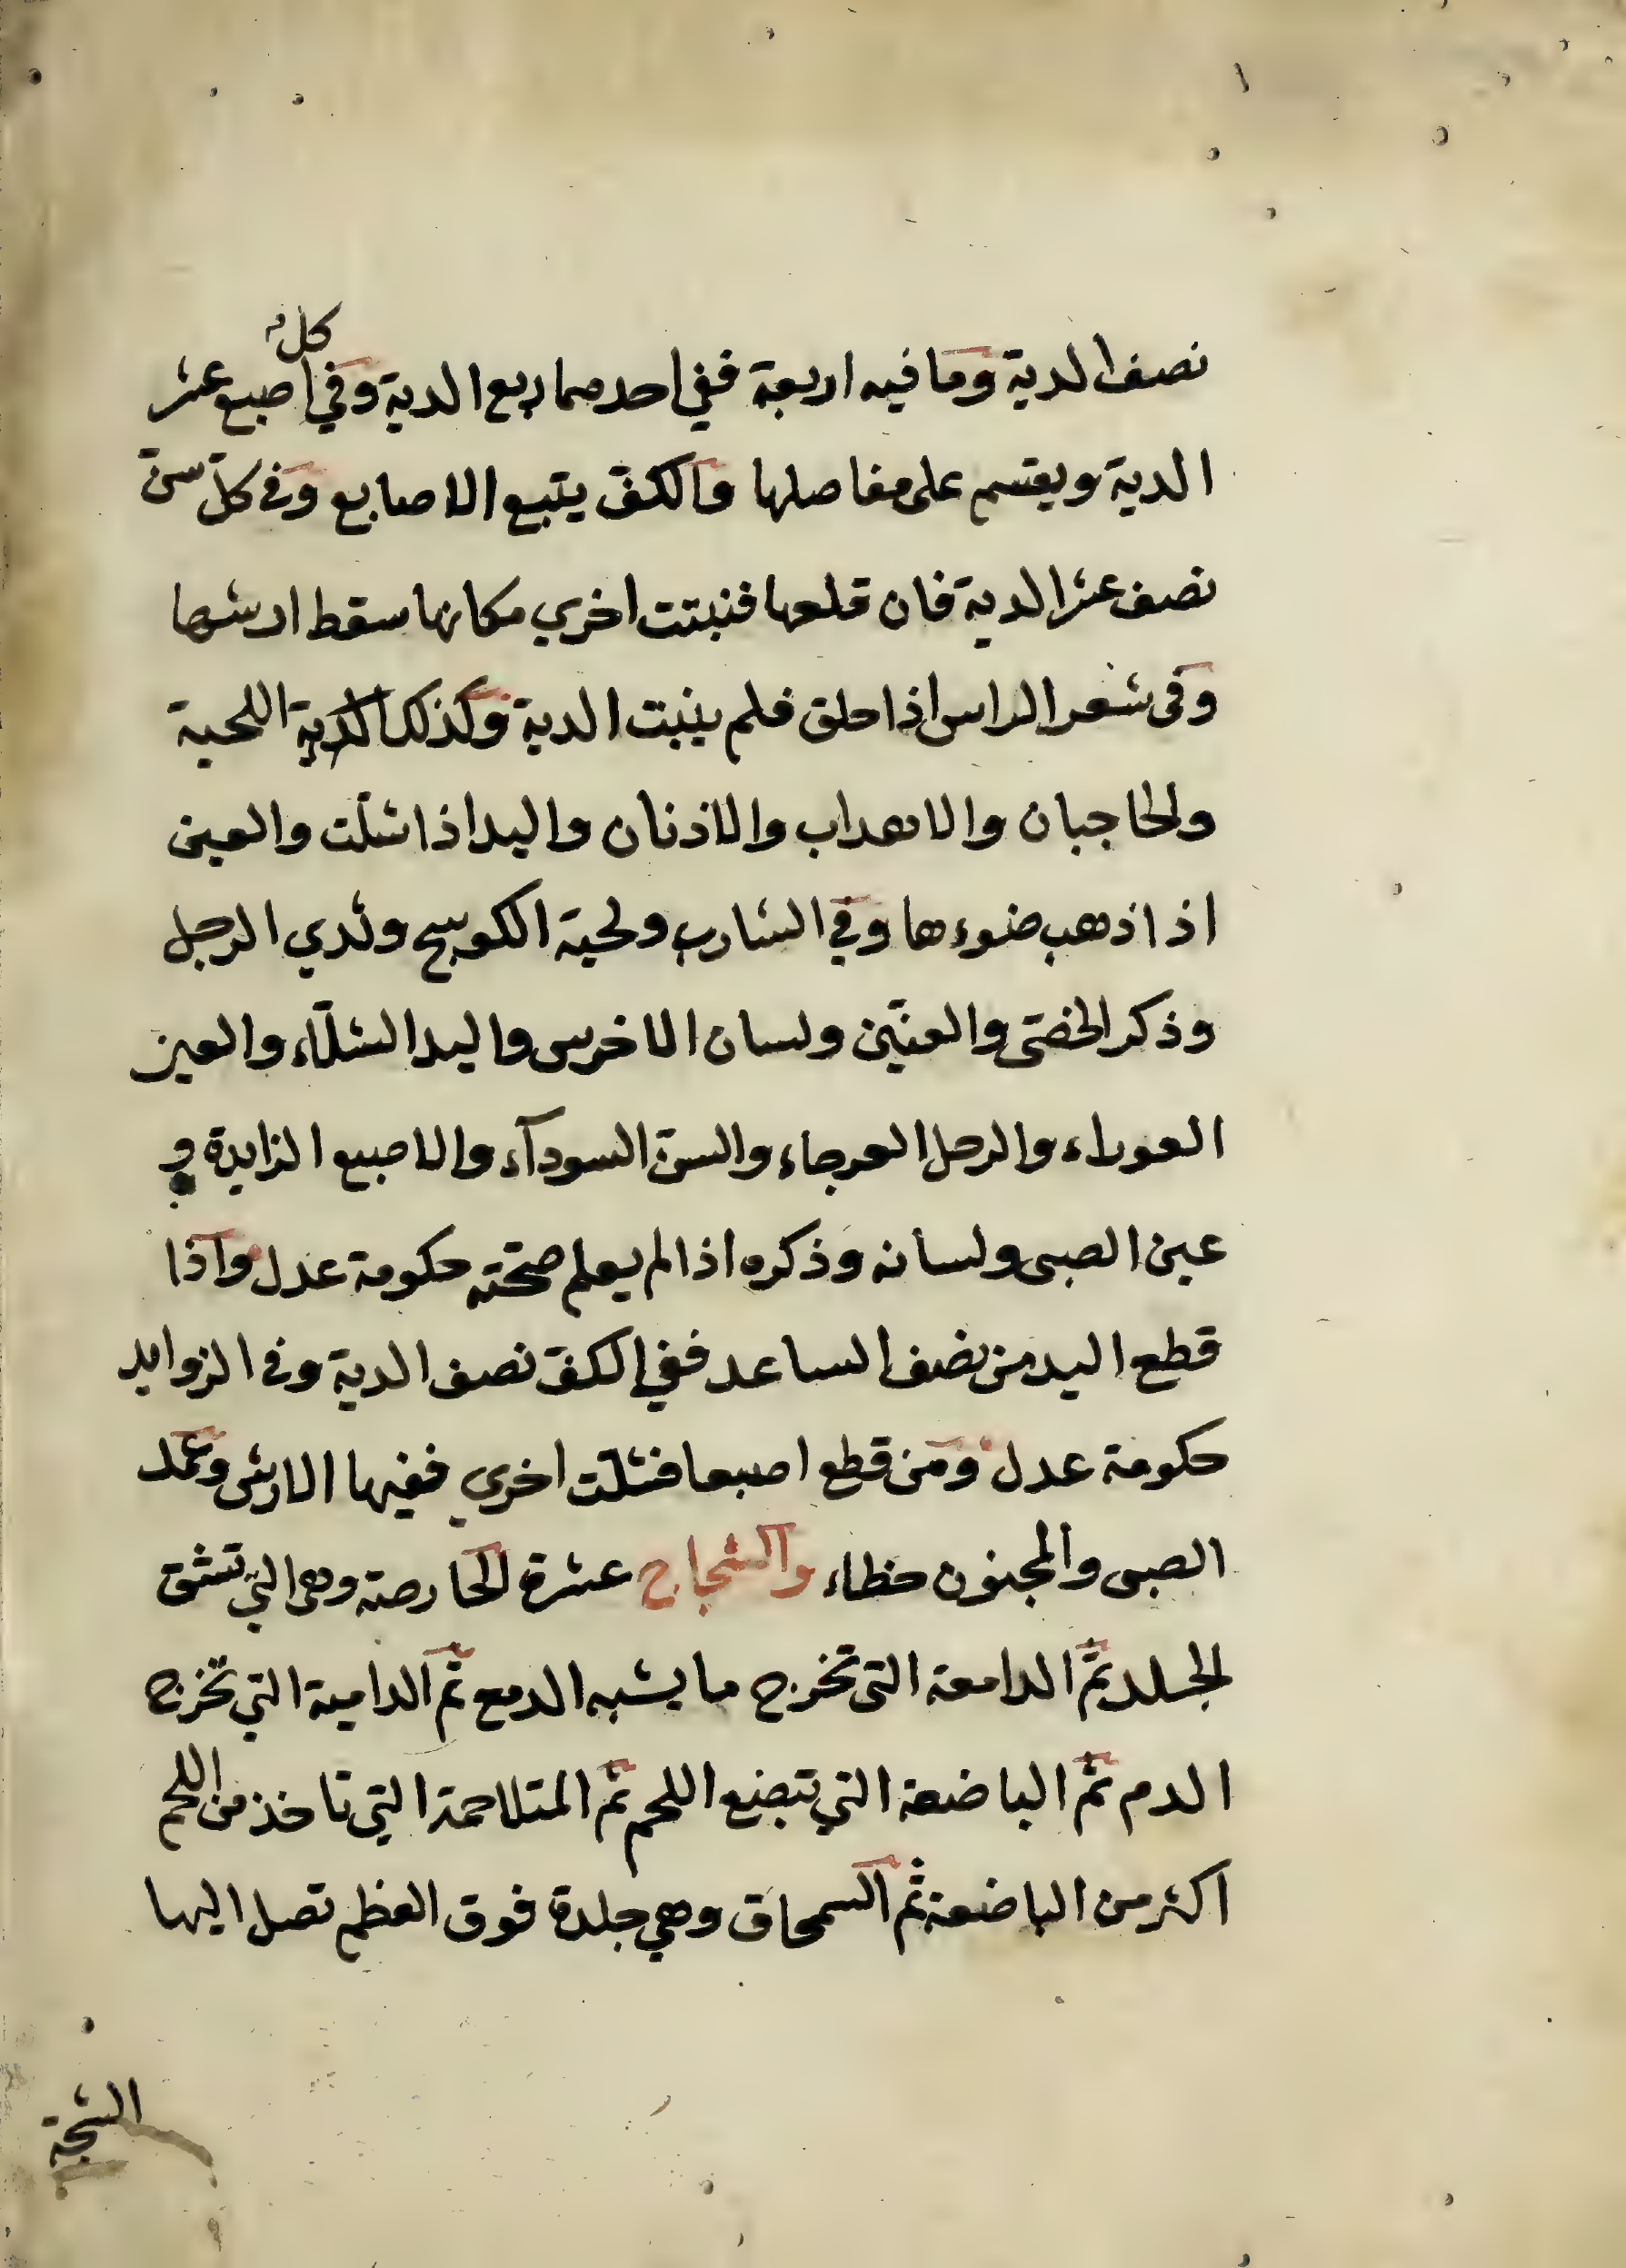 نصف الدية وما فيه اربعة ففي احدهما ربع الدية وفي كل اصبع عشر
الدية ويقسم على مفاصلها والكفّ يتبع الاصابع وفي كلّ سنّ
نصف عشر الدية فان قلعها فنبتت اخري مكانها سقط ارشها
وفى شعر الراس اذا حلق فلم ينبت الدية وكذلك اللحية
والحاجبان والاهداب والاذنان واليد اذا شلّت والعين
اذا ذهب ضوءها وفي الشارب ولحية الكوسج وثدي الرجل
وذكر الخصّى والعنّين ولسان الاخرس واليد الشلّاء والعين
العوراء والرجل العرجاء والسنّ السودآء والاصبع الزايدة و
عين الصبى ولسانه وذكره اذا لم يعلم صحّته حكومة عدل واذا
قطع اليد من نصف الساعد ففي الكفّ نصف الدية وفى الزوايد
حكومة عدل ومن قطع اصبعا فشلّت اخري ففيها الارش وعمد
الصبى والمجنون خطاء والشجاج عشرة الحارصة وهى التي تشق
الجلد ثمّ الدامعة التى تخرج ما يشبه الدمع ثمّ الدامية التي تخرج
الدم ثمّ الباضعة التي تبضع اللحم ثمّ المتلاحمة التي تاخذ من اللحم
اكثر من الباضعة ثم السمحاق وهي جلدة فوق العظم تصل اليها
الشجّة